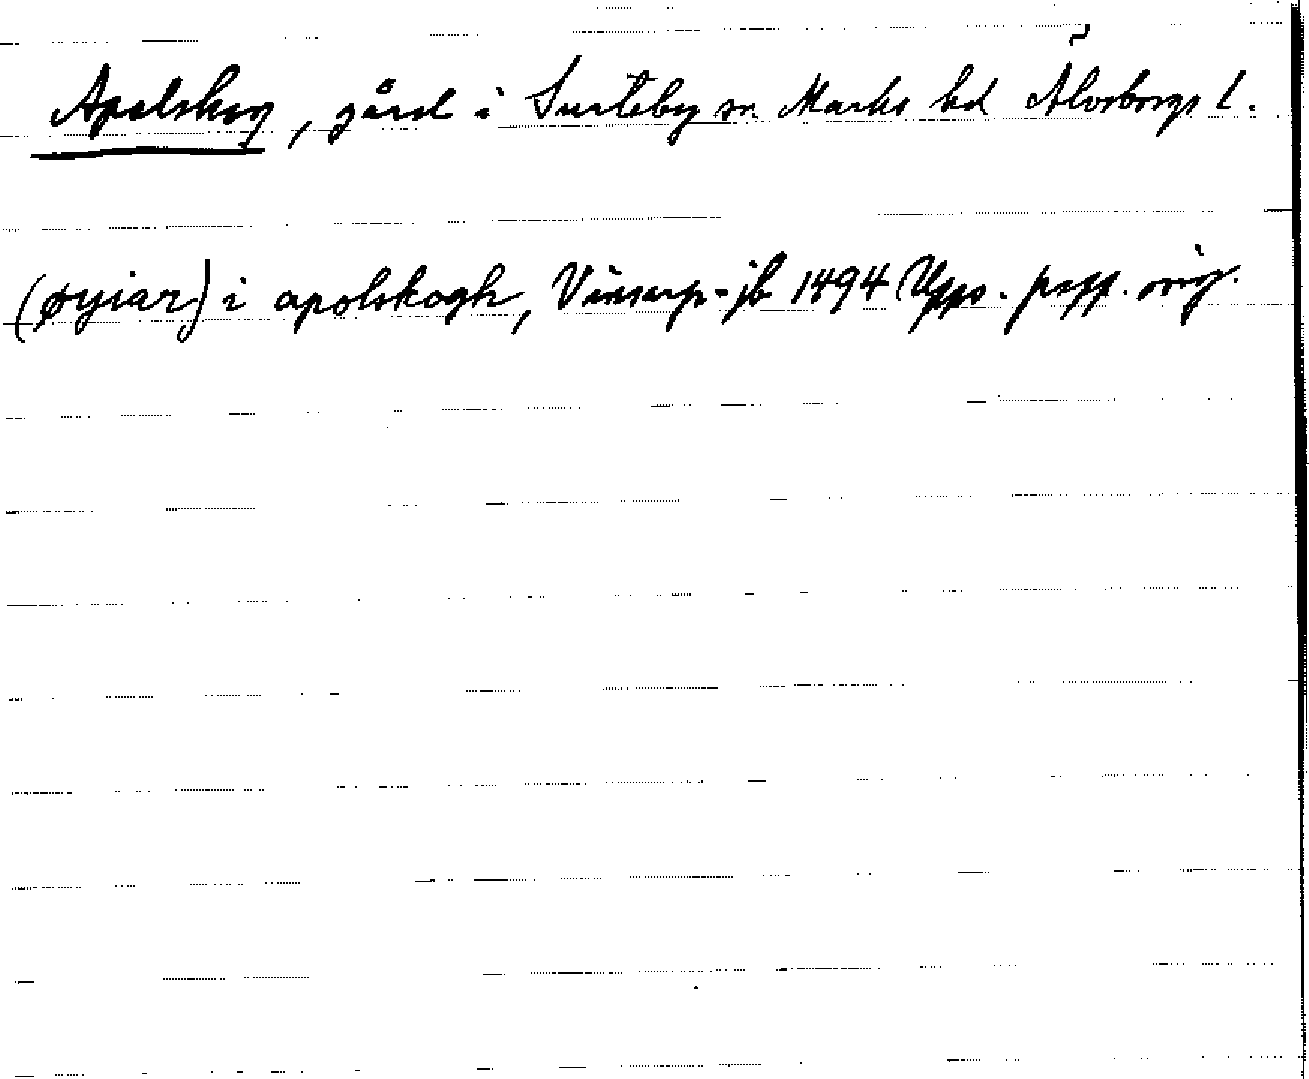 Apelskog, gård i Surteby sn Marks hd Älvsborgs l.
(øyiar) i apolskogh, Vinsarp-jb 1494 Upps. papp. orig.